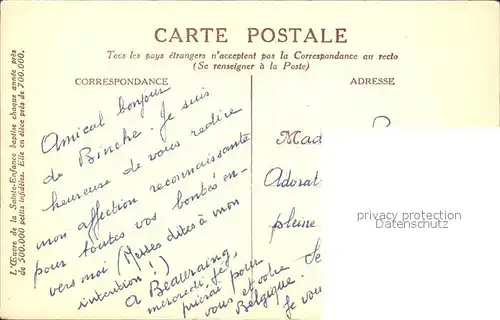 CARTE POSTALE
Tous les pays étrangers n'acceptent pas la Correspondance au recto
(Se renseigner à la Poste)
CORRESPONDANCE
ADRESSE
L'Œuvre de la Sainte-Enfance baptise chaque année près
de 500.000 petits infidèles. Elle en élève près de 700.000.
Amical bonjour
de Binche. Je suis
heureuse de vous redire
mon affection reconnaissante
pour toutes vos bontés en-
vers moi (Messes dites à mon
intention!)
A Beauraing,
mercredi,
prierai pour
vous et votre
Belgique.
Je vou
Mad
Adorat
pleine
Se
privacy protection
Datenschutz